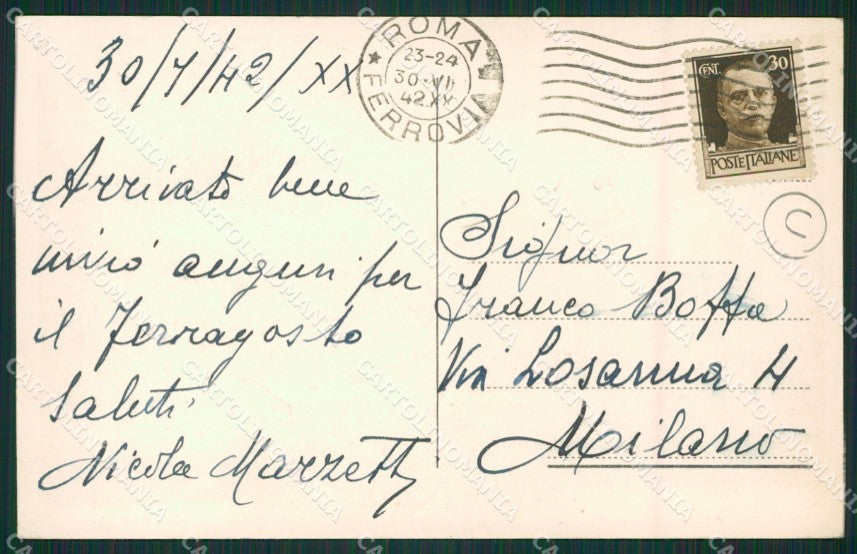 30/7/42/XX
Arrivato bene
invio auguri per
il Ferragosto
Saluti
Nicola Marzetti
ROMA
FERROVIA
23-24
30·VII
42·XX
CENT. 30
POSTE ITALIANE
C
Signor
Franco Boffa
Via Losanna 4
Milano
CARTOLINOMANIA